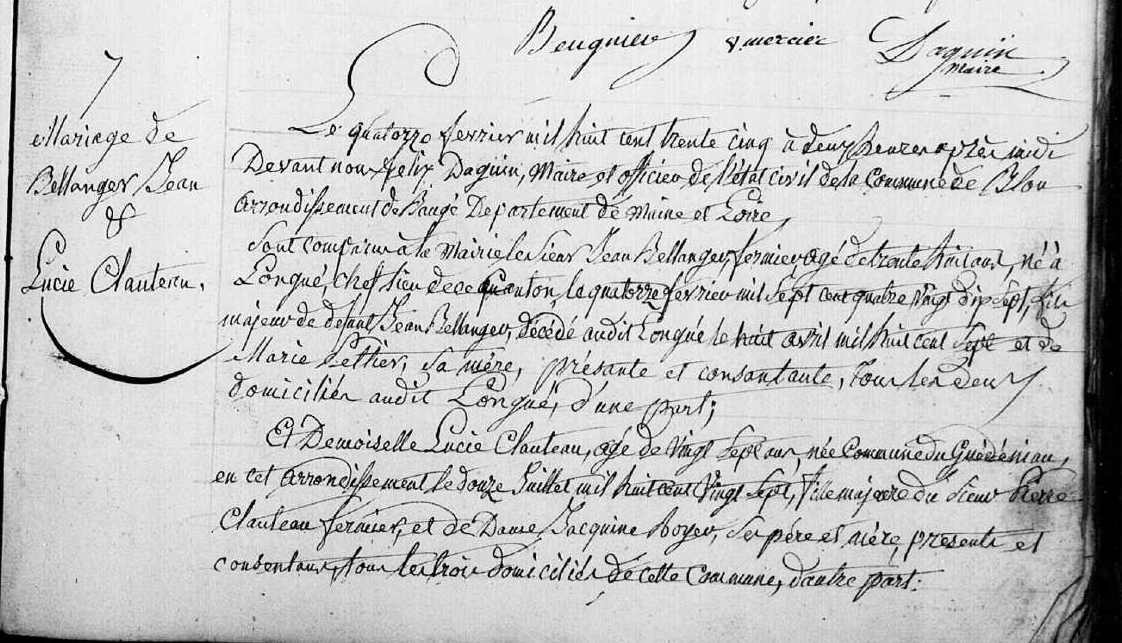 Beugnier
F mercier
Daguin
Maire
7
Mariage de
Bellanger Jean
&
Lucie Clauteau.
Le quatorze fevrier mil huit cent trente cinq à deux heures après midi
Devant nous felix Daguin, Maire et officier de l'état civil de la Commune de Blou
Arrondissement de Baugé Departement de Maine et Loire,
Sont comparu à la Mairie le sieur Jean Bellanger, fermier, agé de trente huit ans, né à
Longué, chef lieu de ce Canton, le quatorze fevrier mil sept cent quatre vingt dix sept, fils
majeur de defunt Jean Bellanger, décedé audit Longué le huit avril mil huit cent sept et de
Marie Peltier, sa mère, présante et consantante, tous les deux
domiciliés audit Longué, d'une part;
Et Demoiselle Lucie Clauteau, agé de vingt sept ans, née Commune du Guédéniau,
en cet arrondissement le douze Juillet mil huit cent vingt sept, fille majeure du sieur Pierre
Clauteau fermier, et de Dame Jacquine Boyer, ses père et mère, présents et
consentans, tous les trois domiciliés de cette Commune, d'autre part: